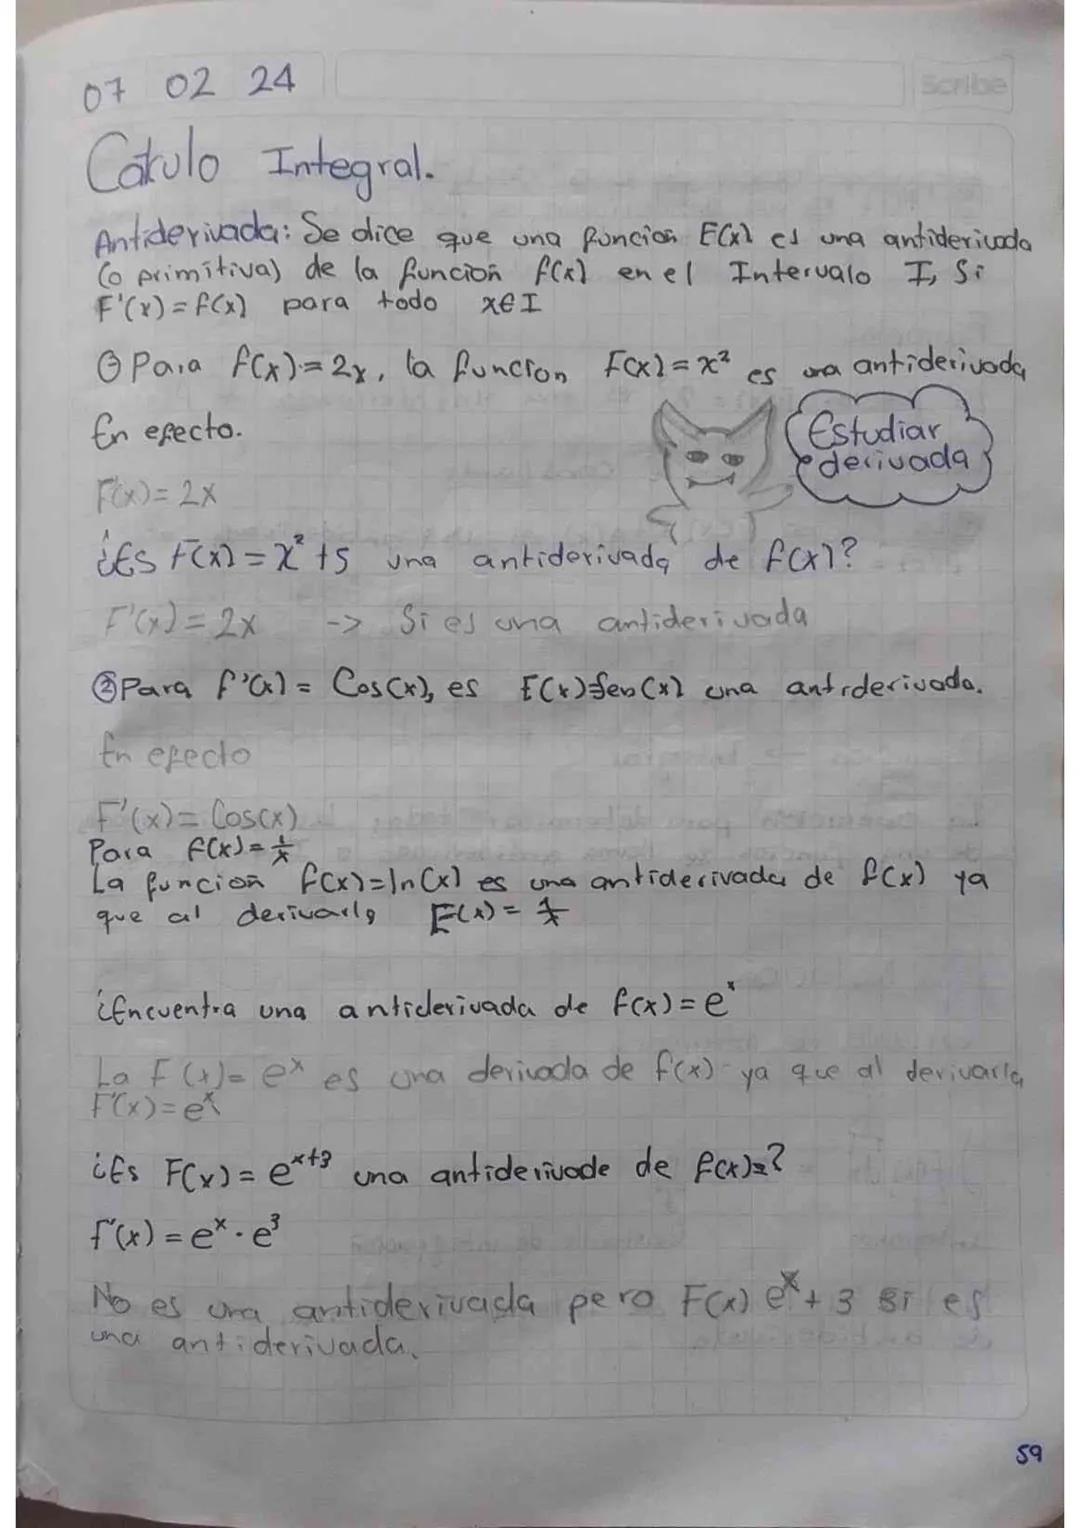 07 02 24
Scribe
Cálculo Integral.
Antiderivada: Se dice que una función F(x) es una antiderivada
(o primitiva) de la función f(x) en el Intervalo I, Si
F'(x) = f(x) para todo x∈I
① Para f(x) = 2x, la función F(x) = x² es una antiderivada
En efecto.
Estudiar
derivada
F'(x) = 2x
¿Es F(x) = x² + 5 una antiderivada de f(x)?
F'(x) = 2x -> Si es una antiderivada
② Para f'(x) = Cos(x), es F(x) = Sen(x) una antiderivada.
En efecto
F'(x) = Cos(x)
Para f(x) = 1/x
La función f(x) = ln(x) es una antiderivada de f(x) ya
que al derivarla F(x) = 1/x
¿Encuentra una antiderivada de f(x) = eˣ
La F(x) = eˣ es una derivada de f(x) ya que al derivarla
F'(x) = eˣ
¿Es F(x) = eˣ⁺³ una antiderivade de f(x)=?
f'(x) = eˣ · e³
No es una antiderivada pero F(x) eˣ + 3 si es
una antiderivada.
59